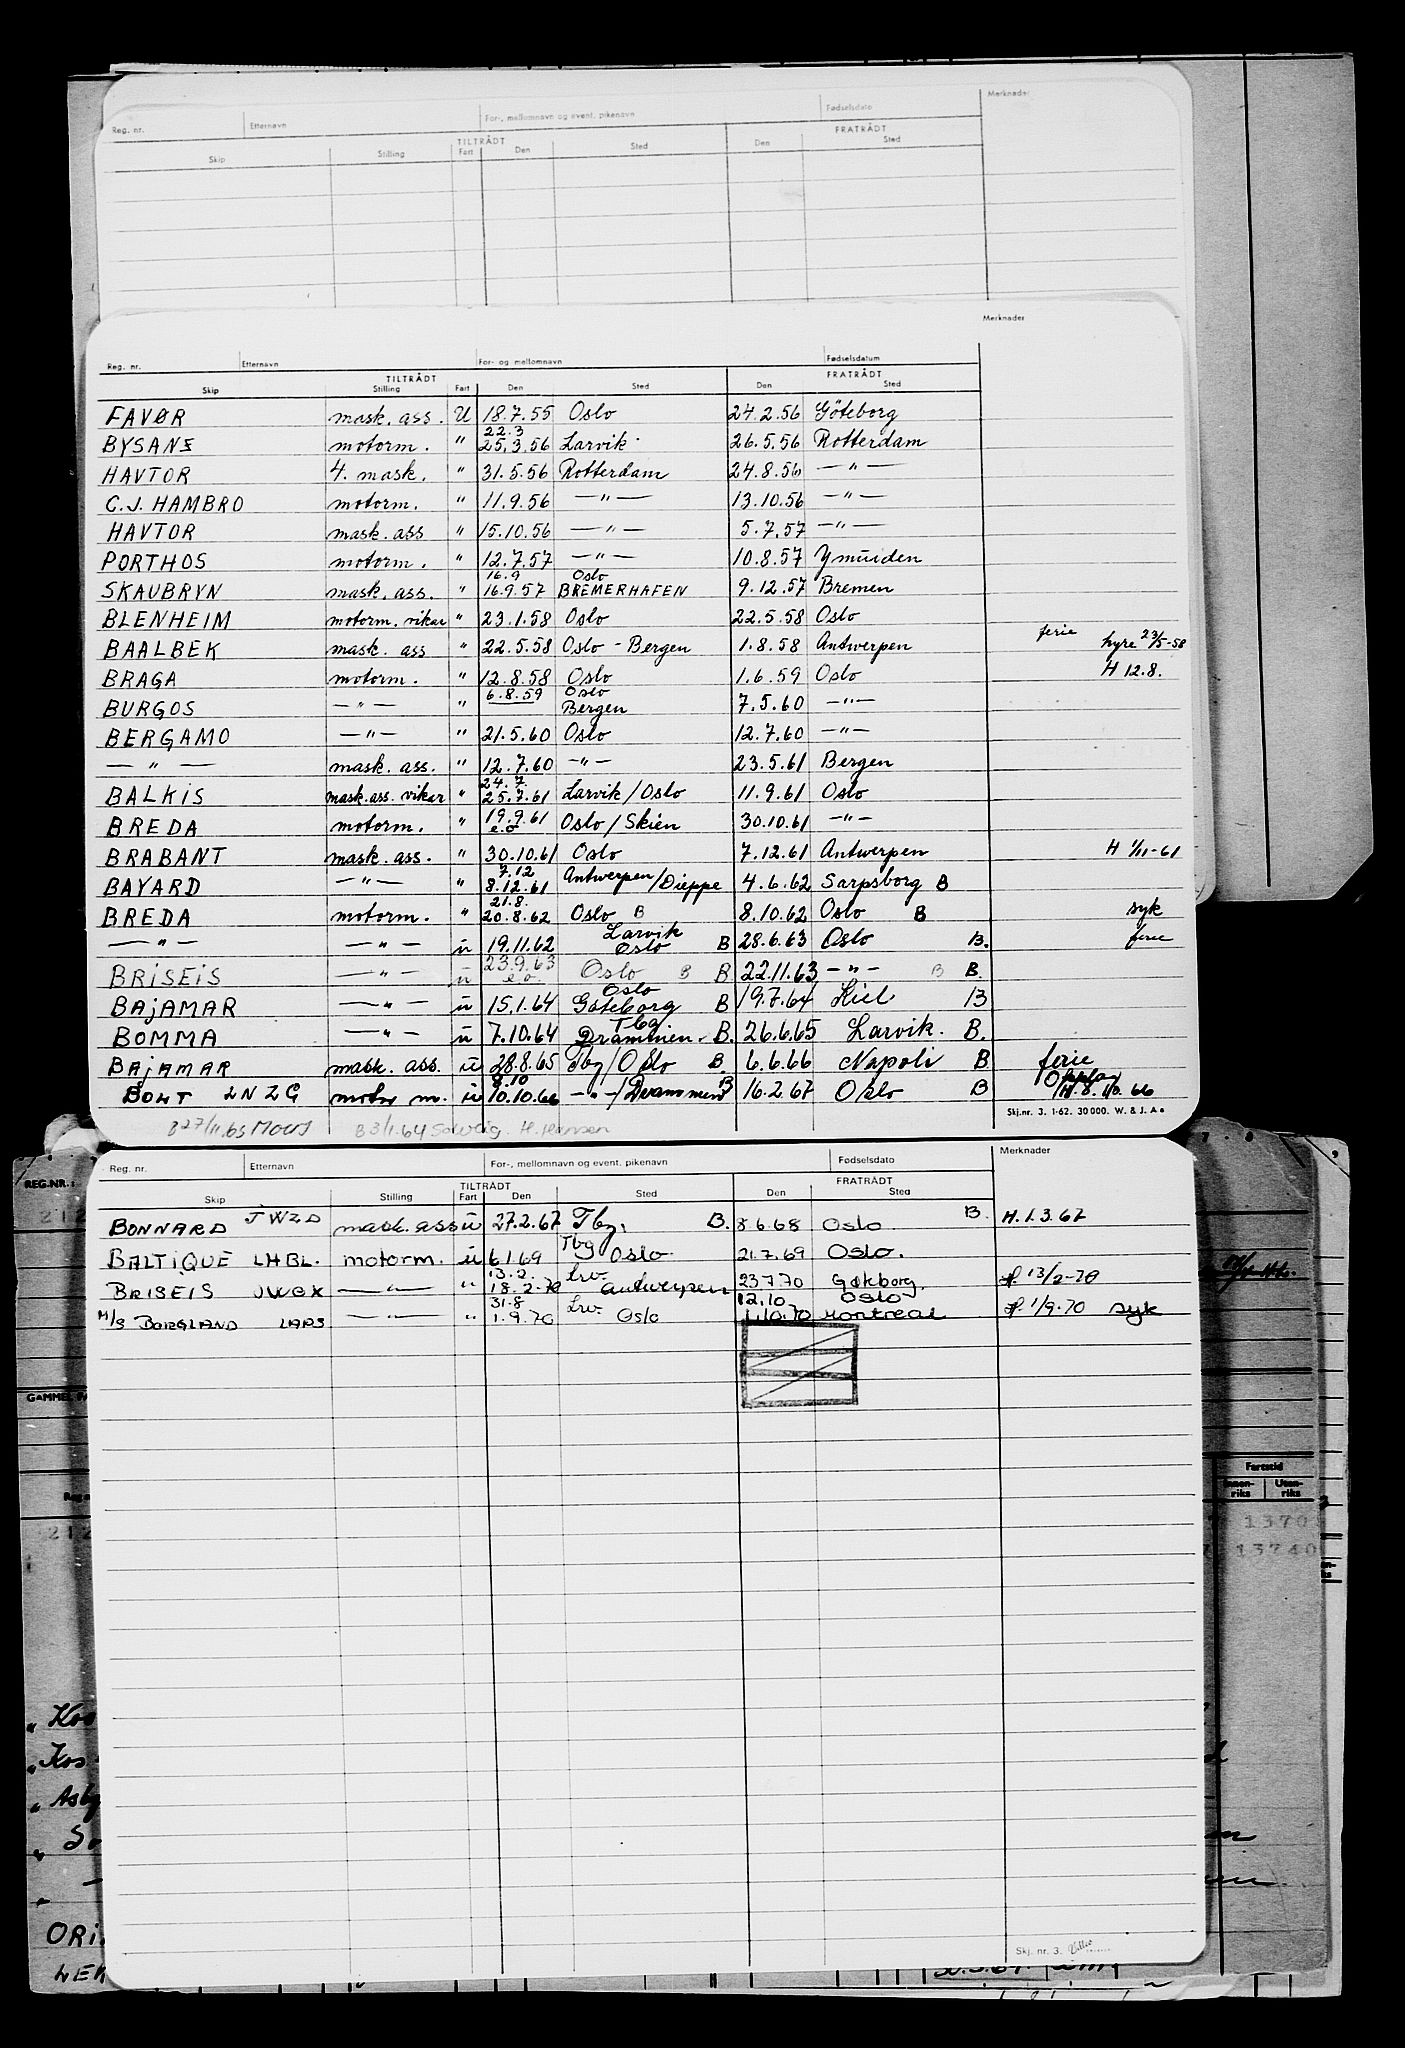 Merknader
Reg. nr. Etternavn For-, mellomnavn og event. pikenavn Fødselsdato
TILTRÅDT FRATRÅDT
Skip Stilling Fart Den Sted Den Sted
Merknader
Reg. nr. Etternavn For- og mellomnavn Fødselsdatum
TILTRÅDT FRATRÅDT
Skip Stilling Fart Den Sted Den Sted
FAVØR mask. ass. U 18.7.55 Oslo 24.2.56 Göteborg
22.3
BYSANZ motorm. " 25.3.56 Larvik 26.5.56 Rotterdam
HAVTOR 4. mask. " 31.5.56 Rotterdam 24.8.56 — " —
C.J. HAMBRO motorm. " 11.9.56 — " — 13.10.56 — " —
HAVTOR mask. ass " 15.10.56 — " — 5.7.57 — " —
PORTHOS motorm. " 12.7.57 — " — 10.8.57 Ymuiden
16.9 Oslo
SKAUBRYN mask. ass. " 16.9.57 BREMERHAFEN 9.12.57 Bremen
BLENHEIM motorm. vikar " 23.1.58 Oslo 22.5.58 Oslo
BAALBEK mask. ass " 22.5.58 Oslo - Bergen 1.8.58 Antwerpen ferie hyre 23/5-58
BRAGA motorm. " 12.8.58 Oslo 1.6.59 Oslo H 12.8.
6.8.59 Oslo
BURGOS — " — " Bergen 7.5.60 — " —
BERGAMO — " — " 21.5.60 Oslo 12.7.60 — " —
— " — mask. ass. " 12.7.60 — " — 23.5.61 Bergen
24.7.
BALKIS mask. ass. vikar " 25.7.61 Larvik/Oslo 11.9.61 Oslo
BREDA motorm. " 19.9.61 Oslo/Skien 30.10.61 — " —
e.o
BRABANT mask. ass. " 30.10.61 Oslo 7.12.61 Antwerpen H 1/11-61
7.12
BAYARD — " — " 8.12.61 Antwerpen/Dieppe 4.6.62 Sarpsborg B
21.8.
BREDA motorm. " 20.8.62 Oslo B 8.10.62 Oslo B syk
Larvik
— " — — " — u 19.11.62 Oslo B 28.6.63 Oslo B. ferie
23.9.63
BRISEIS — " — u e.o Oslo B B 22.11.63 — " — B B.
Oslo
BAJAMAR — " — u 15.1.64 Gøteborg B 19.7.64 Kiel B
Tbg
BOMMA — " — u 7.10.64 Drammen. B. 26.6.65 Larvik. B.
BAJAMAR mask. ass. u 28.8.65 Tbg/Oslo B. 6.6.66 Napoli B ferie
8.10
LNZG motor m. u 10.10.66 — " —/Drammen B 16.2.67 Oslo B 66
Skj.nr. 3. 1-62. 30000. W. & J. A.s
B 27/11.65 B 3/1.64 Solveig. H. Hansen
Merknader
Reg. nr. Etternavn For-, mellomnavn og event. pikenavn Fødselsdato
TILTRÅDT FRATRÅDT
Skip Stilling Fart Den Sted Den Sted
BONNARD JWZD mask. ass u 27.2.67 Tbg. B. 8.6.68 Oslo B. H. 1.3.67
Tbg
BALTIQUE LHBL. motorm. u 6.1.69 Oslo. 21.7.69 Oslo.
13.2. Lrv.
BRISEIS JWGX — " — " 18.2.70 Antwerpen 23.7.70 Gøteborg 13/2-70
31.8 Lrv. 12.10 Oslo
M/S BORGLAND LADS — " — " 1.9.70 Oslo 1.10.70 Montreal 1/9.70 syk
Skj. nr. 3.
REG.NR.:
212
GAMMEL
Fartstid
Innen-riks Uten-riks
212
1370
13740
Kos
Kos
Asby
ORI